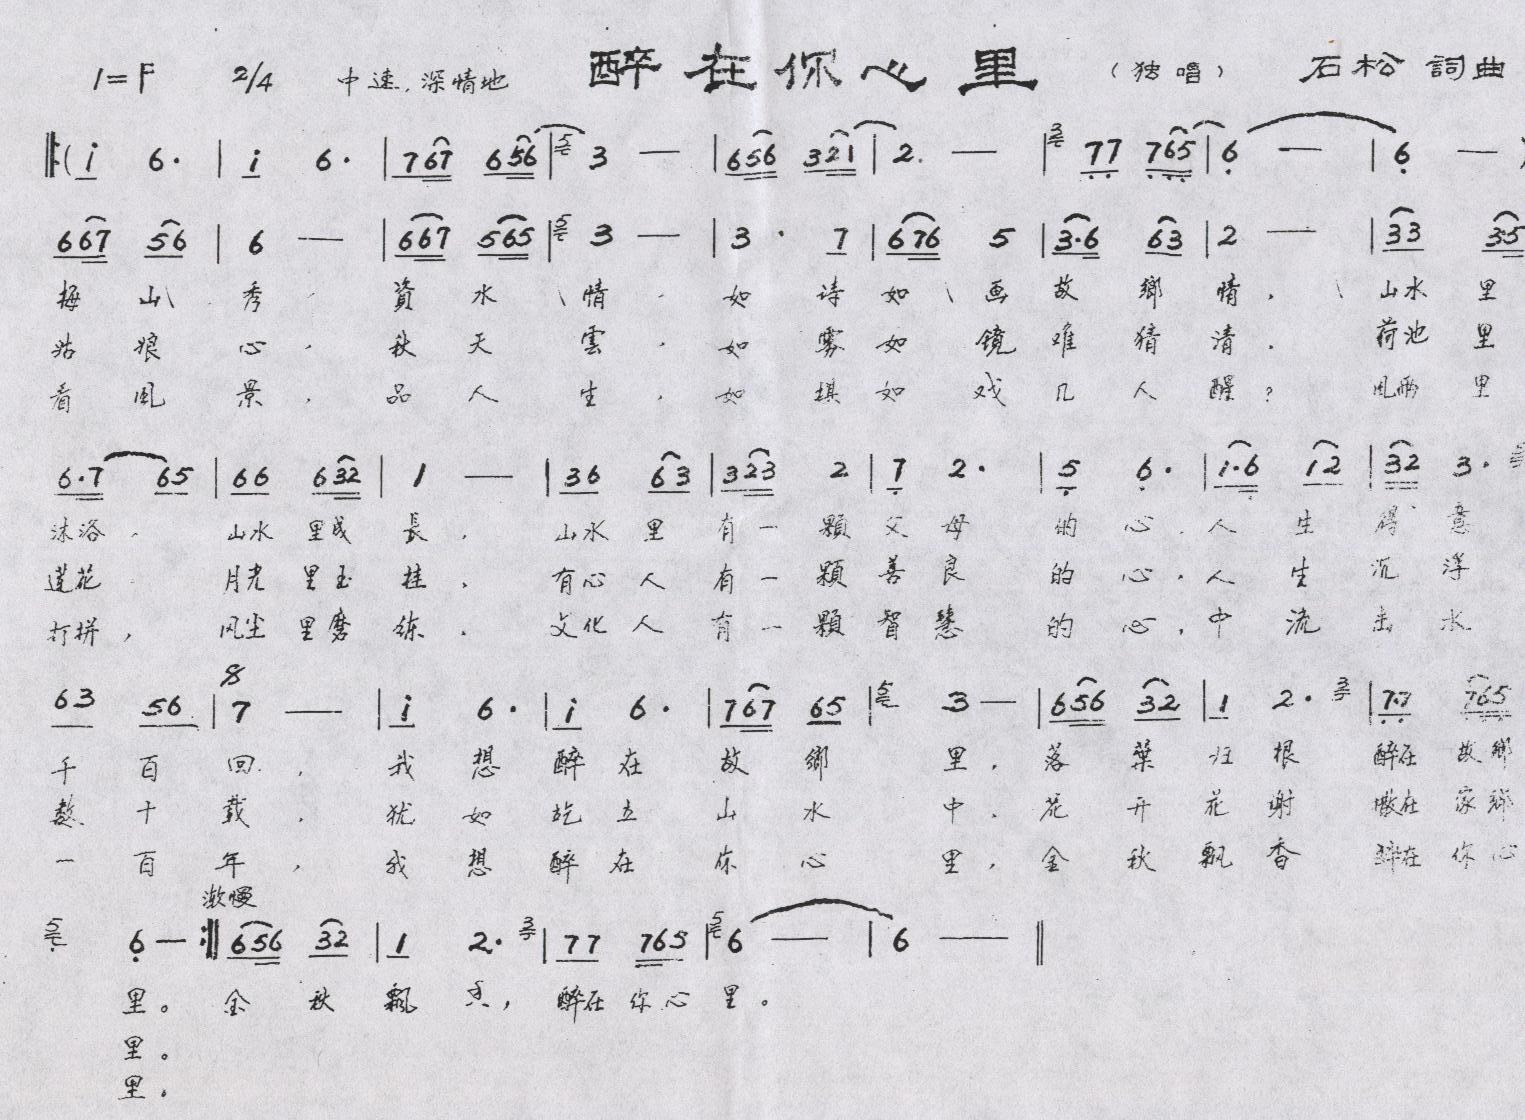 1=F 2/4 中速,深情地 醉在你心里 (独唱) 石松 詞曲
‖:( i 6· | i 6· | 767 656 | 3 — | 656 321 | 2. — | 77 765 | 6 — | 6 — )
667 56 | 6 — | 667 565 | 3 — | 3· 7 | 676 5 | 3·6 63 | 2 — | 33 35
梅山秀 資水情,如诗如画故鄉情,山水里
姑娘心,秋天雲,如雾如镜难猜清.荷池里
看風景,品人生,如棋如戏几人醒?風雨里
6·7 65 | 66 632 | 1 — | 36 63 | 323 2 | 7 2· | 5 6· | i·6 12 | 32 3·
沐浴,山水里成長,山水里有一顆父母的心.人生得意
莲花 月光里玉桂,有心人有一顆善良的心.人生沉浮
打拼,风尘里磨练.文化人有一顆智慧的心,中流击水
63 56 | 7 — | i 6· | i 6· | 767 65 | 3 — | 656 32 | 1 2· | 77 765
千百回,我想醉在故鄉里.落葉归根醉在故鄉
数十载,犹如屹立山水中.花开花谢撒在家鄉
一百年,我想醉在你心里,金秋飘香醉在你心
渐慢
6 — :‖ 656 32 | 1 2· | 77 765 | 6 — | 6 — ‖
里。金秋飘香,醉在你心里。
里。
里.